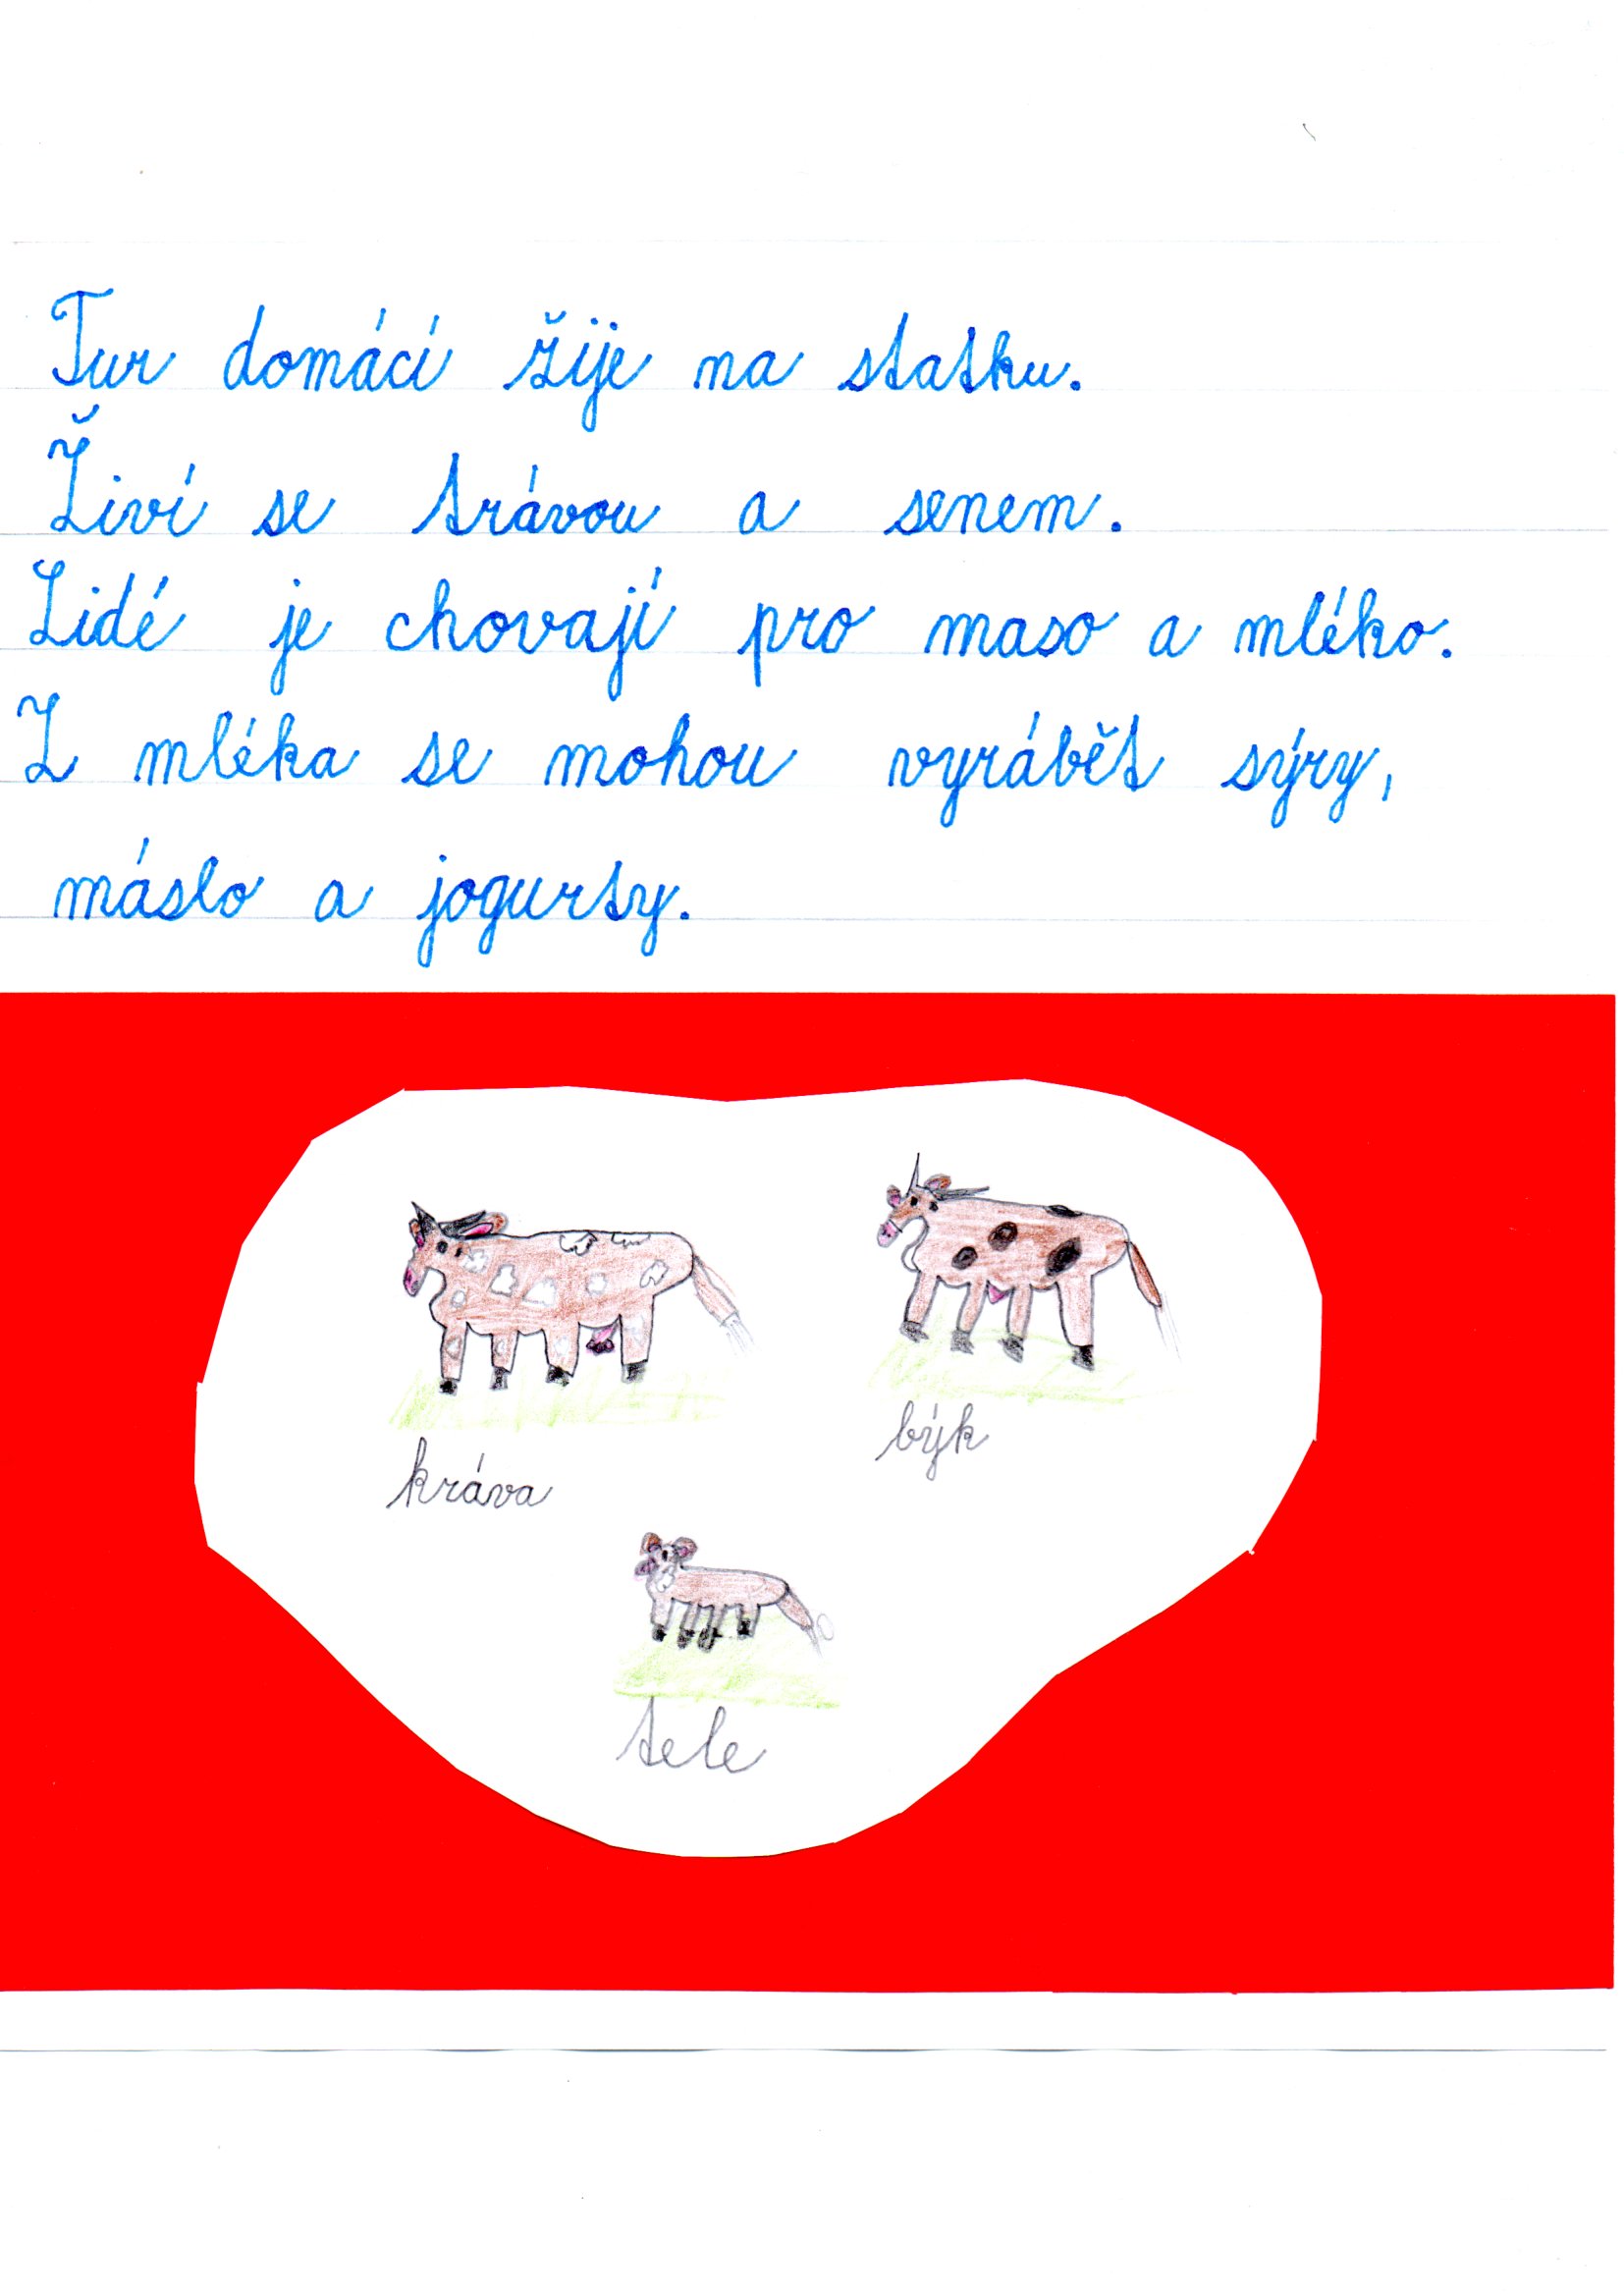 Tur domácí žije na statku.
Živí se trávou a senem.
Lidé je chovají pro maso a mléko.
Z mléka se mohou vyrábět sýry,
máslo a jogurty.
kráva
býk
tele